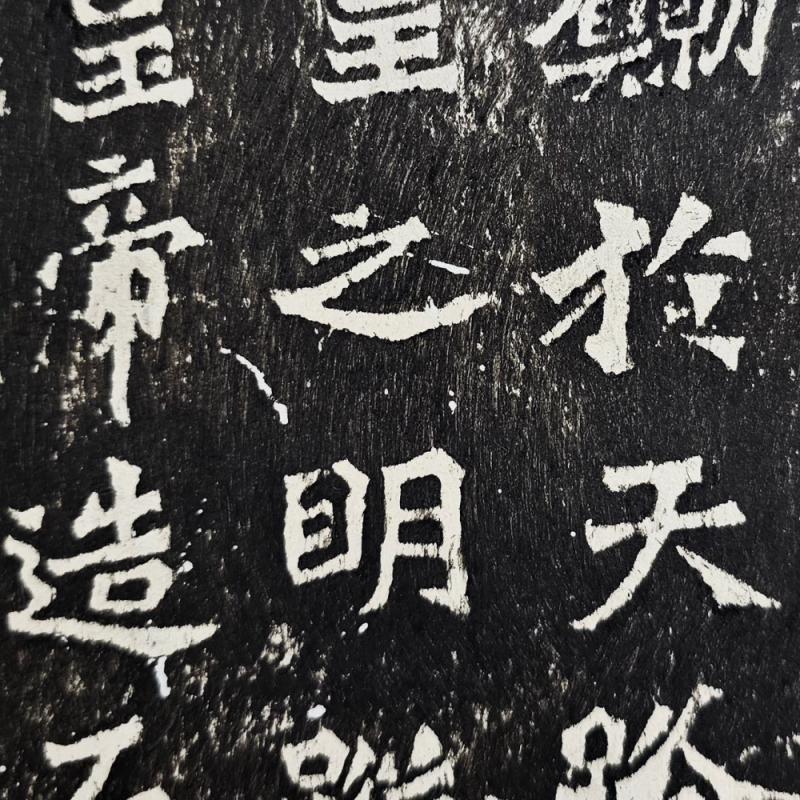 於天路
皇之明
皇帝造石